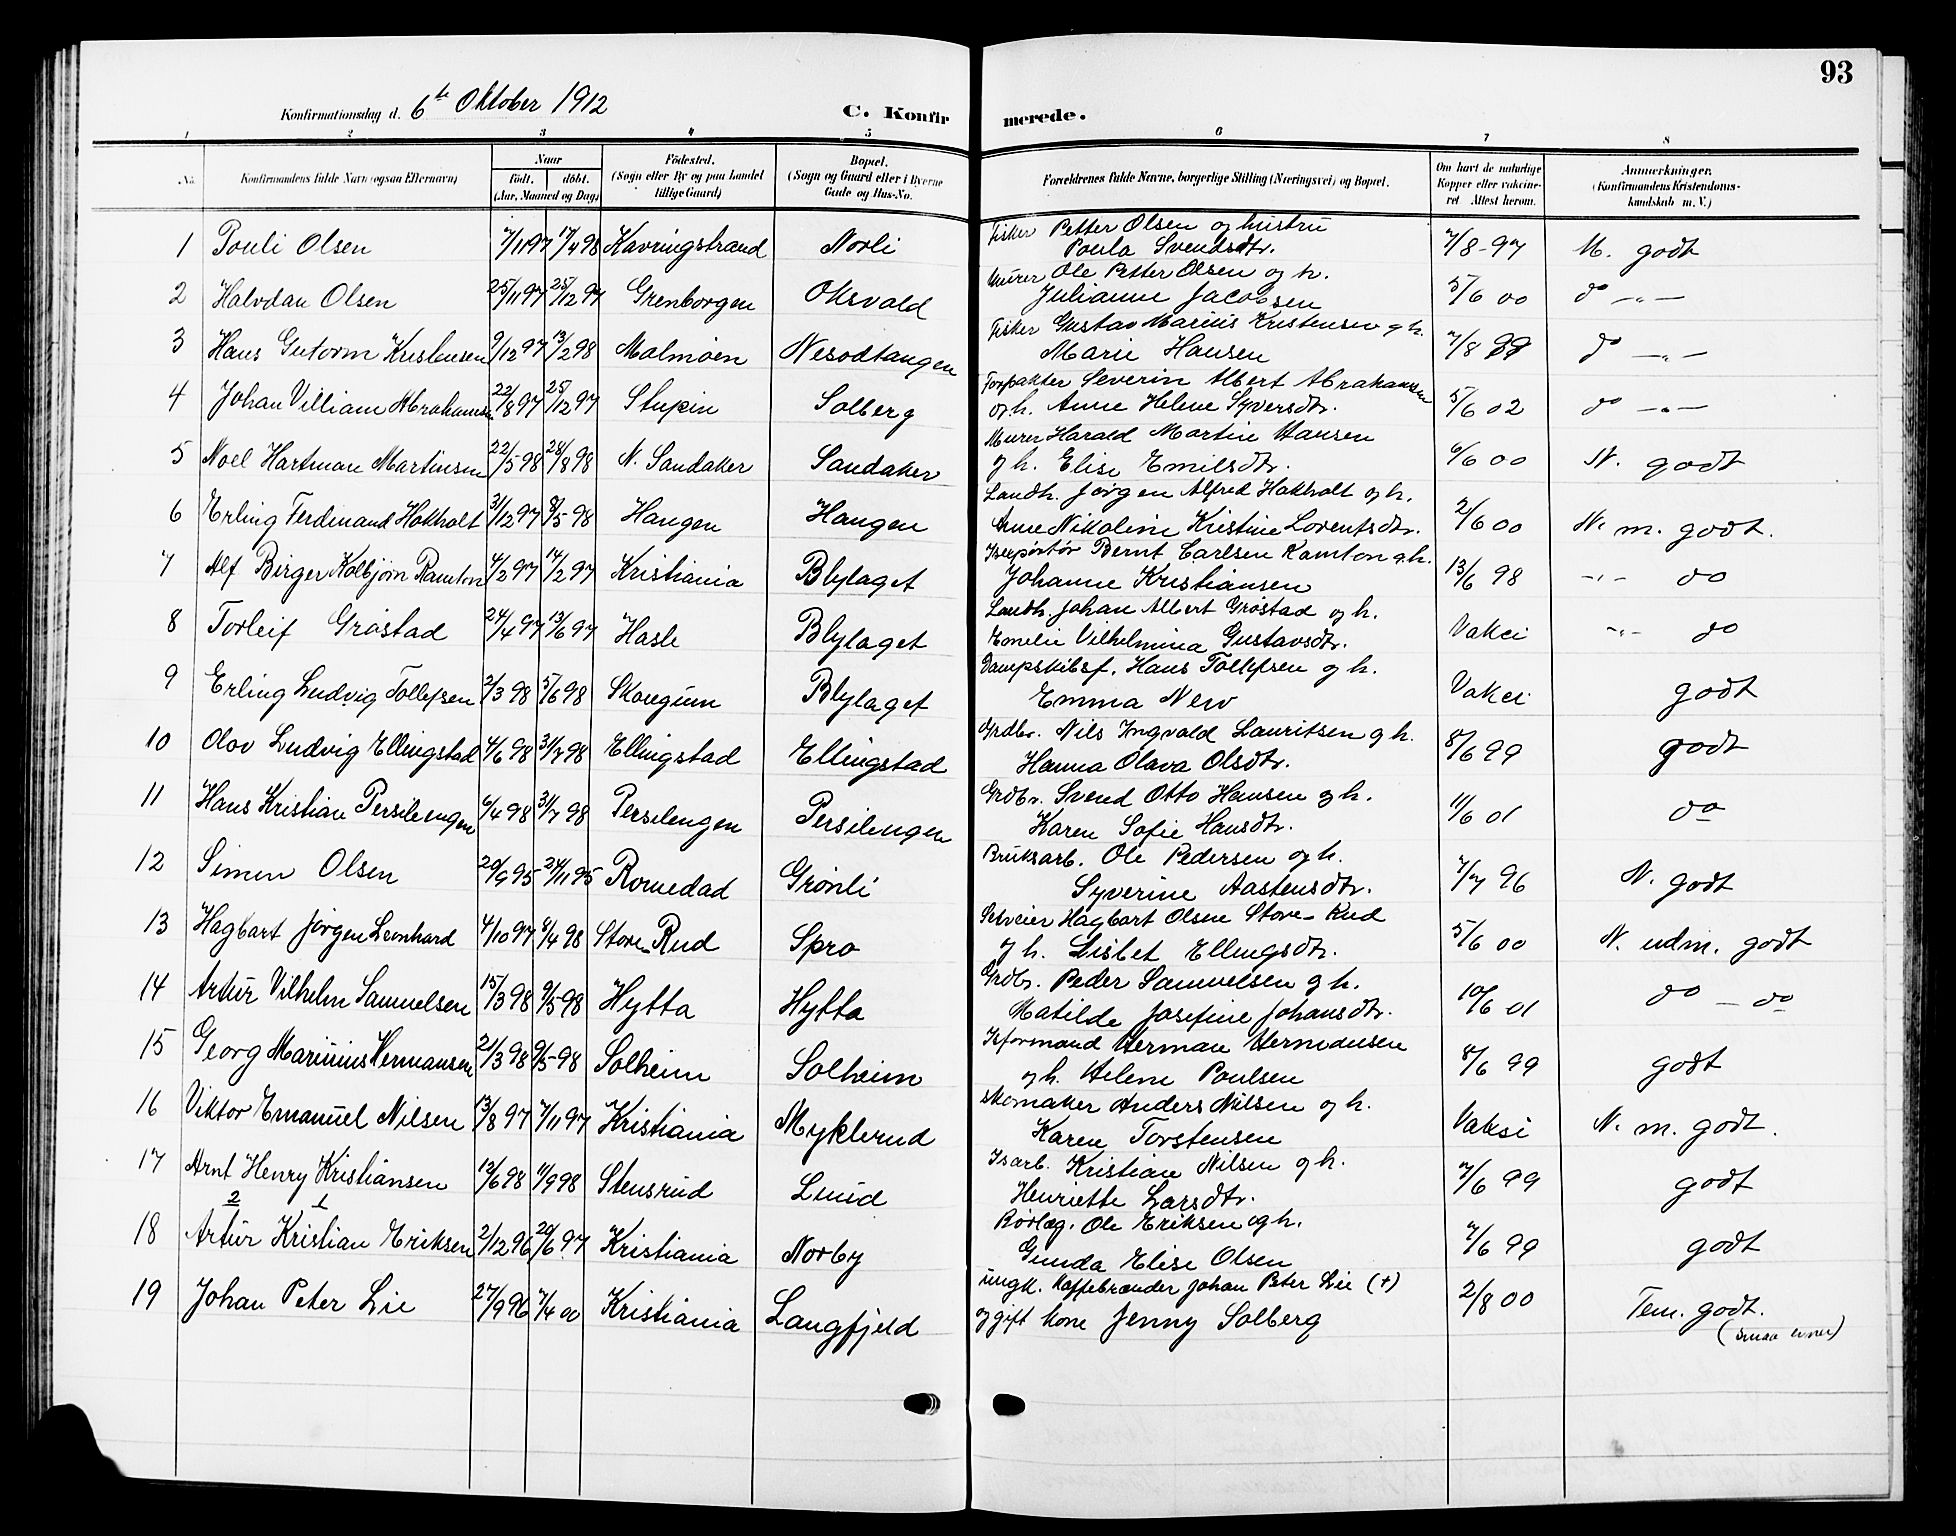 93
Konfirmationsdag d. 6te Oktober 1912 C. Konfirmerede.
1 2 3 4 5 6 7 8
No. Konfirmandens fulde Navn (ogsaa Efternavn) Naar Födt. döbt. (Aar, Maaned og Dag) Födested. (Sogn eller By og paa Landet tillige Gaard) Bopæl. (Sogn og Gaard eller i Byerne Gade og Hus-No. Forældrenes fulde Navne, borgerlige Stilling (Næringsvei) og Bopæl. Om havt de naturlige Kopper eller vakcineret Attest herom. Anmærkninger. (Konfirmandens Kristendomskundskab m. V.)
1 Pouli Olsen 7/11 97 17/4 98 Kavringstrand Norli Fisker Petter Olsen og hustru
Poula Svendsdtr. 7/8-97 M. godt
2 Halvdan Olsen 25/11 97 25/12 97 Grenborgen Oksvald Murer Ole Petter Olsen og h.
Julianne Jacobsen 5/6 00 do -"-
3 Hans Gutorm Kristensen 9/12 97 13/2 98 Malmöen Nesodtangen Fisker Gustav Marius Kristensen og h.
Marie Hansen 7/8 99 do -"-
4 Johan Villiam Abrahamsen 22/8 97 25/12 97 Stupin Solberg Forpakter Severin Albert Abrahamsen
og h. Anne Helene Syversdtr. 5/6 02 do -"-
5 Noel Hartman Martinsen 22/5 98 28/8 98 N. Sandaker Sandaker Murer Harald Martin Hansen
og h. Elise Emilsdtr. 6/6 00 N. godt
6 Erling Ferdinand Hokholt 31/12 97 8/5 98 Haugen Haugen Landh. Jörgen Alfred Hokholt og h.
Anne Nikoline Kristine Lorentsdtr. 2/6 00 N. m. godt.
7 Alf Birger Kolbjörn Ramton 4/2 97 14/2 97 Kristiania Blylaget Isexportör Bernt Carlsen Ramton og h.
Johanne Kristiansen 13/6 98 -"- do
8 Torleif Gröstad 24/4 97 13/6 97 Hasle Blylaget Landh. Johan Albert Gröstad og h.
Emelie Vilhelmina Gustavsdtr. Vakci -"- do
9 Erling Ludvig Tollefsen 2/3 98 5/6 98 Skoegum Blylaget Dampskibsf. Hans Tollefsen og h.
Emma New Vakci godt
10 Olov Ludvig Ellingstad 4/6 98 31/7 98 Ellingstad Ellingstad Grdbr. Nils Ingvald Lauritsen og h.
Hanna Olava Olsdtr. 8/6 99 godt
11 Hans Kristian Persilengen 6/4 98 31/7 98 Persilengen Persilengen Grdbr. Svend Otto Hansen og h.
Karen Sofie Hansdtr. 11/6 01 do
12 Simen Olsen 20/9 95 24/11 95 Romedad Grönli Bruksarb. Ole Pedersen og h.
Syverine Aastensdtr. 7/7 96 N. godt
13 Hagbart Jörgen Leonhard 4/10 97 8/4 98 Store-Rud Spro Selveier Hagbart Olsen Store-Rud
og h. Lisbet Ellingsdtr. 5/6 00 N. udm. godt
14 Artur Vilhelm Samuelsen 15/3 98 9/5 98 Hytta Hytta Grdbr. Peder Samuelsen og h.
Matilde Josefine Johansdtr. 10/6 01 do - do
15 Georg Marinius Hermansen 21/3 98 9/5-98 Solheim Solheim Isformand Herman Hermansen
og h. Helene Poulsen 8/6 99 godt
16 Viktor Emanuel Nilsen 13/8 97 7/11 97 Kristiania Myklerud Skomaker Anders Nilsen og h.
Karen Torstensen Vaksi N. m. godt.
17 Arnt Henry Kristiansen 13/6 98 11/9 98 Stensrud Lund Isarb. Kristian Nilsen og h.
Henriette Larsdtr. 7/6 99 godt
2 1
18 Artur Kristian Eriksen 2/12 96 20/6 97 Kristiania Norby Rörlæg. Ole Eriksen og h.
Gunda Elise Olsen 7/6 99 godt
19 Johan Peter Lie 27/9 96 7/4 00 Kristiania Langfjeld ungk. Kaffebrænder Johan Peter Lie (+)
og gift kone Jenny Solberg 2/8 00 Tem. godt.
(smaa evner)